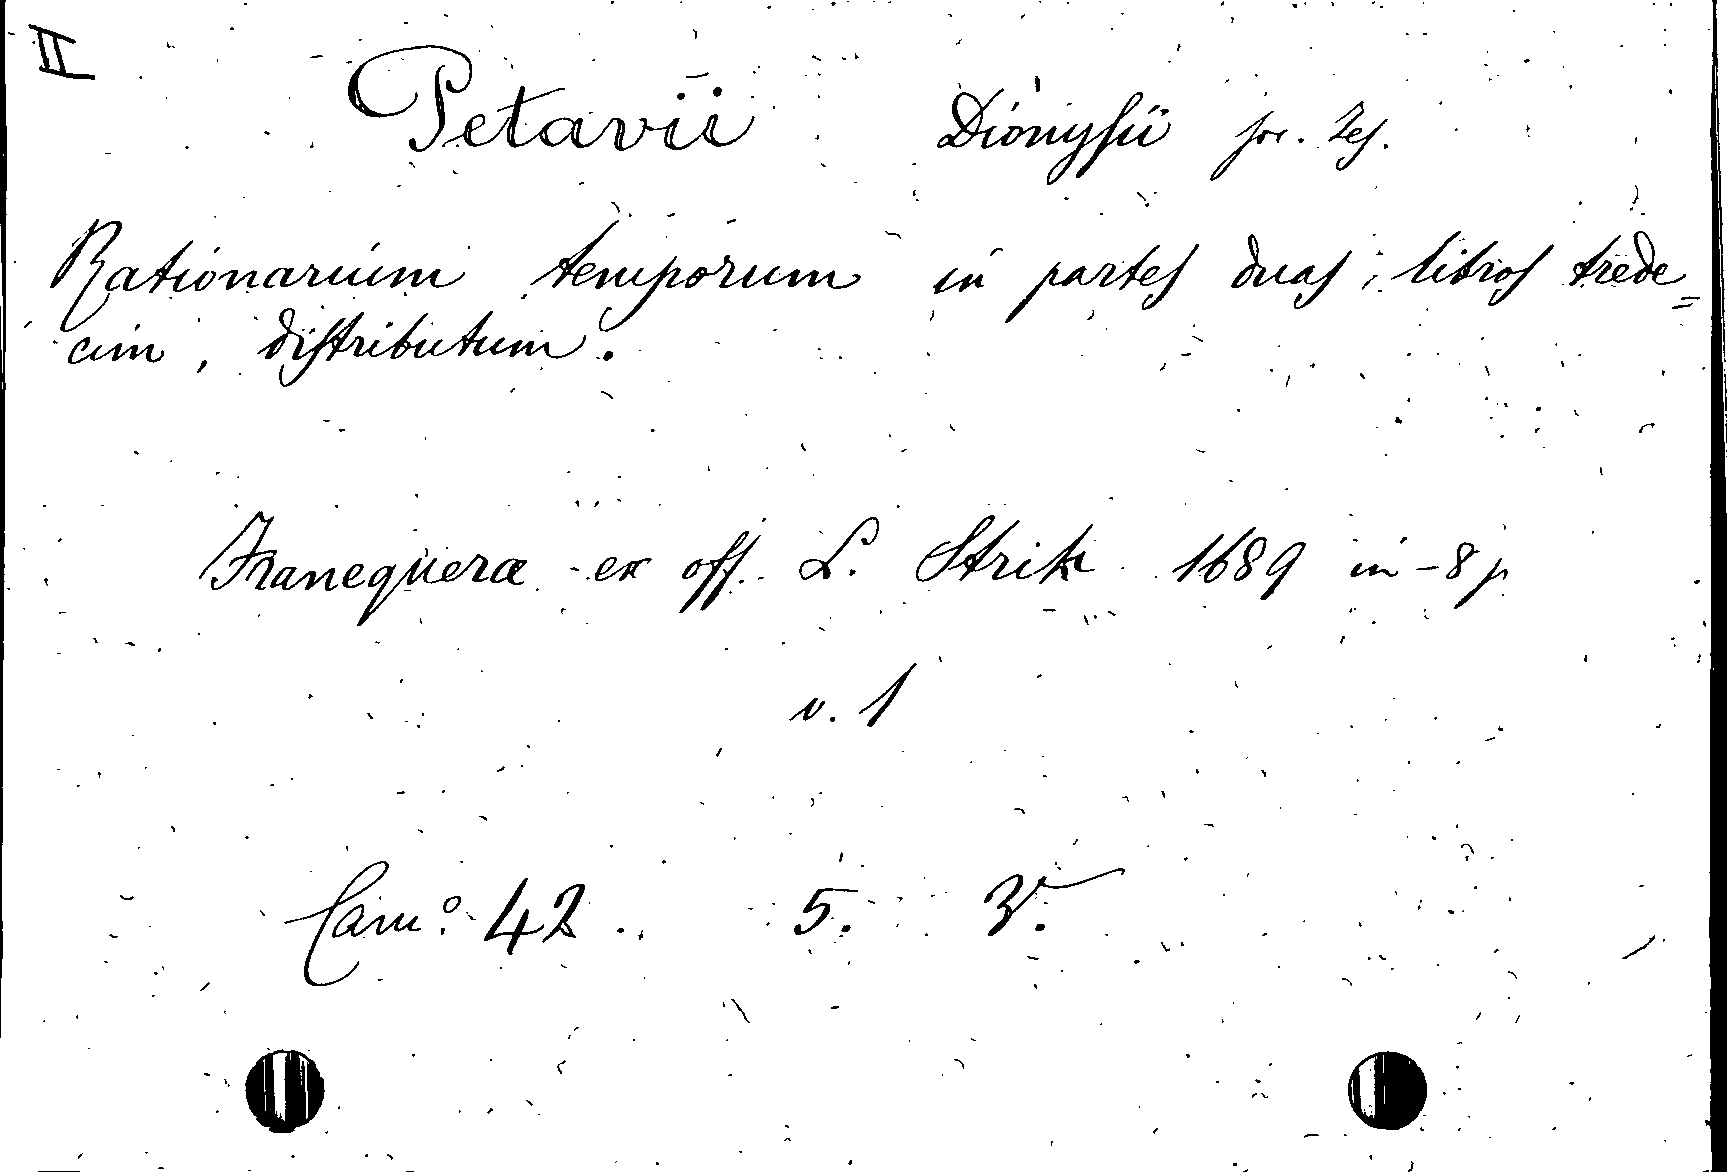 II
Petavii Dionysii soc. Jes.
Rationarium temporum in partes duas, libros trede=
cim, distributum.
Franequeræ ex off. L. Strik 1689 in-8 p
v. 1
Cam.º 42. 5. 3.